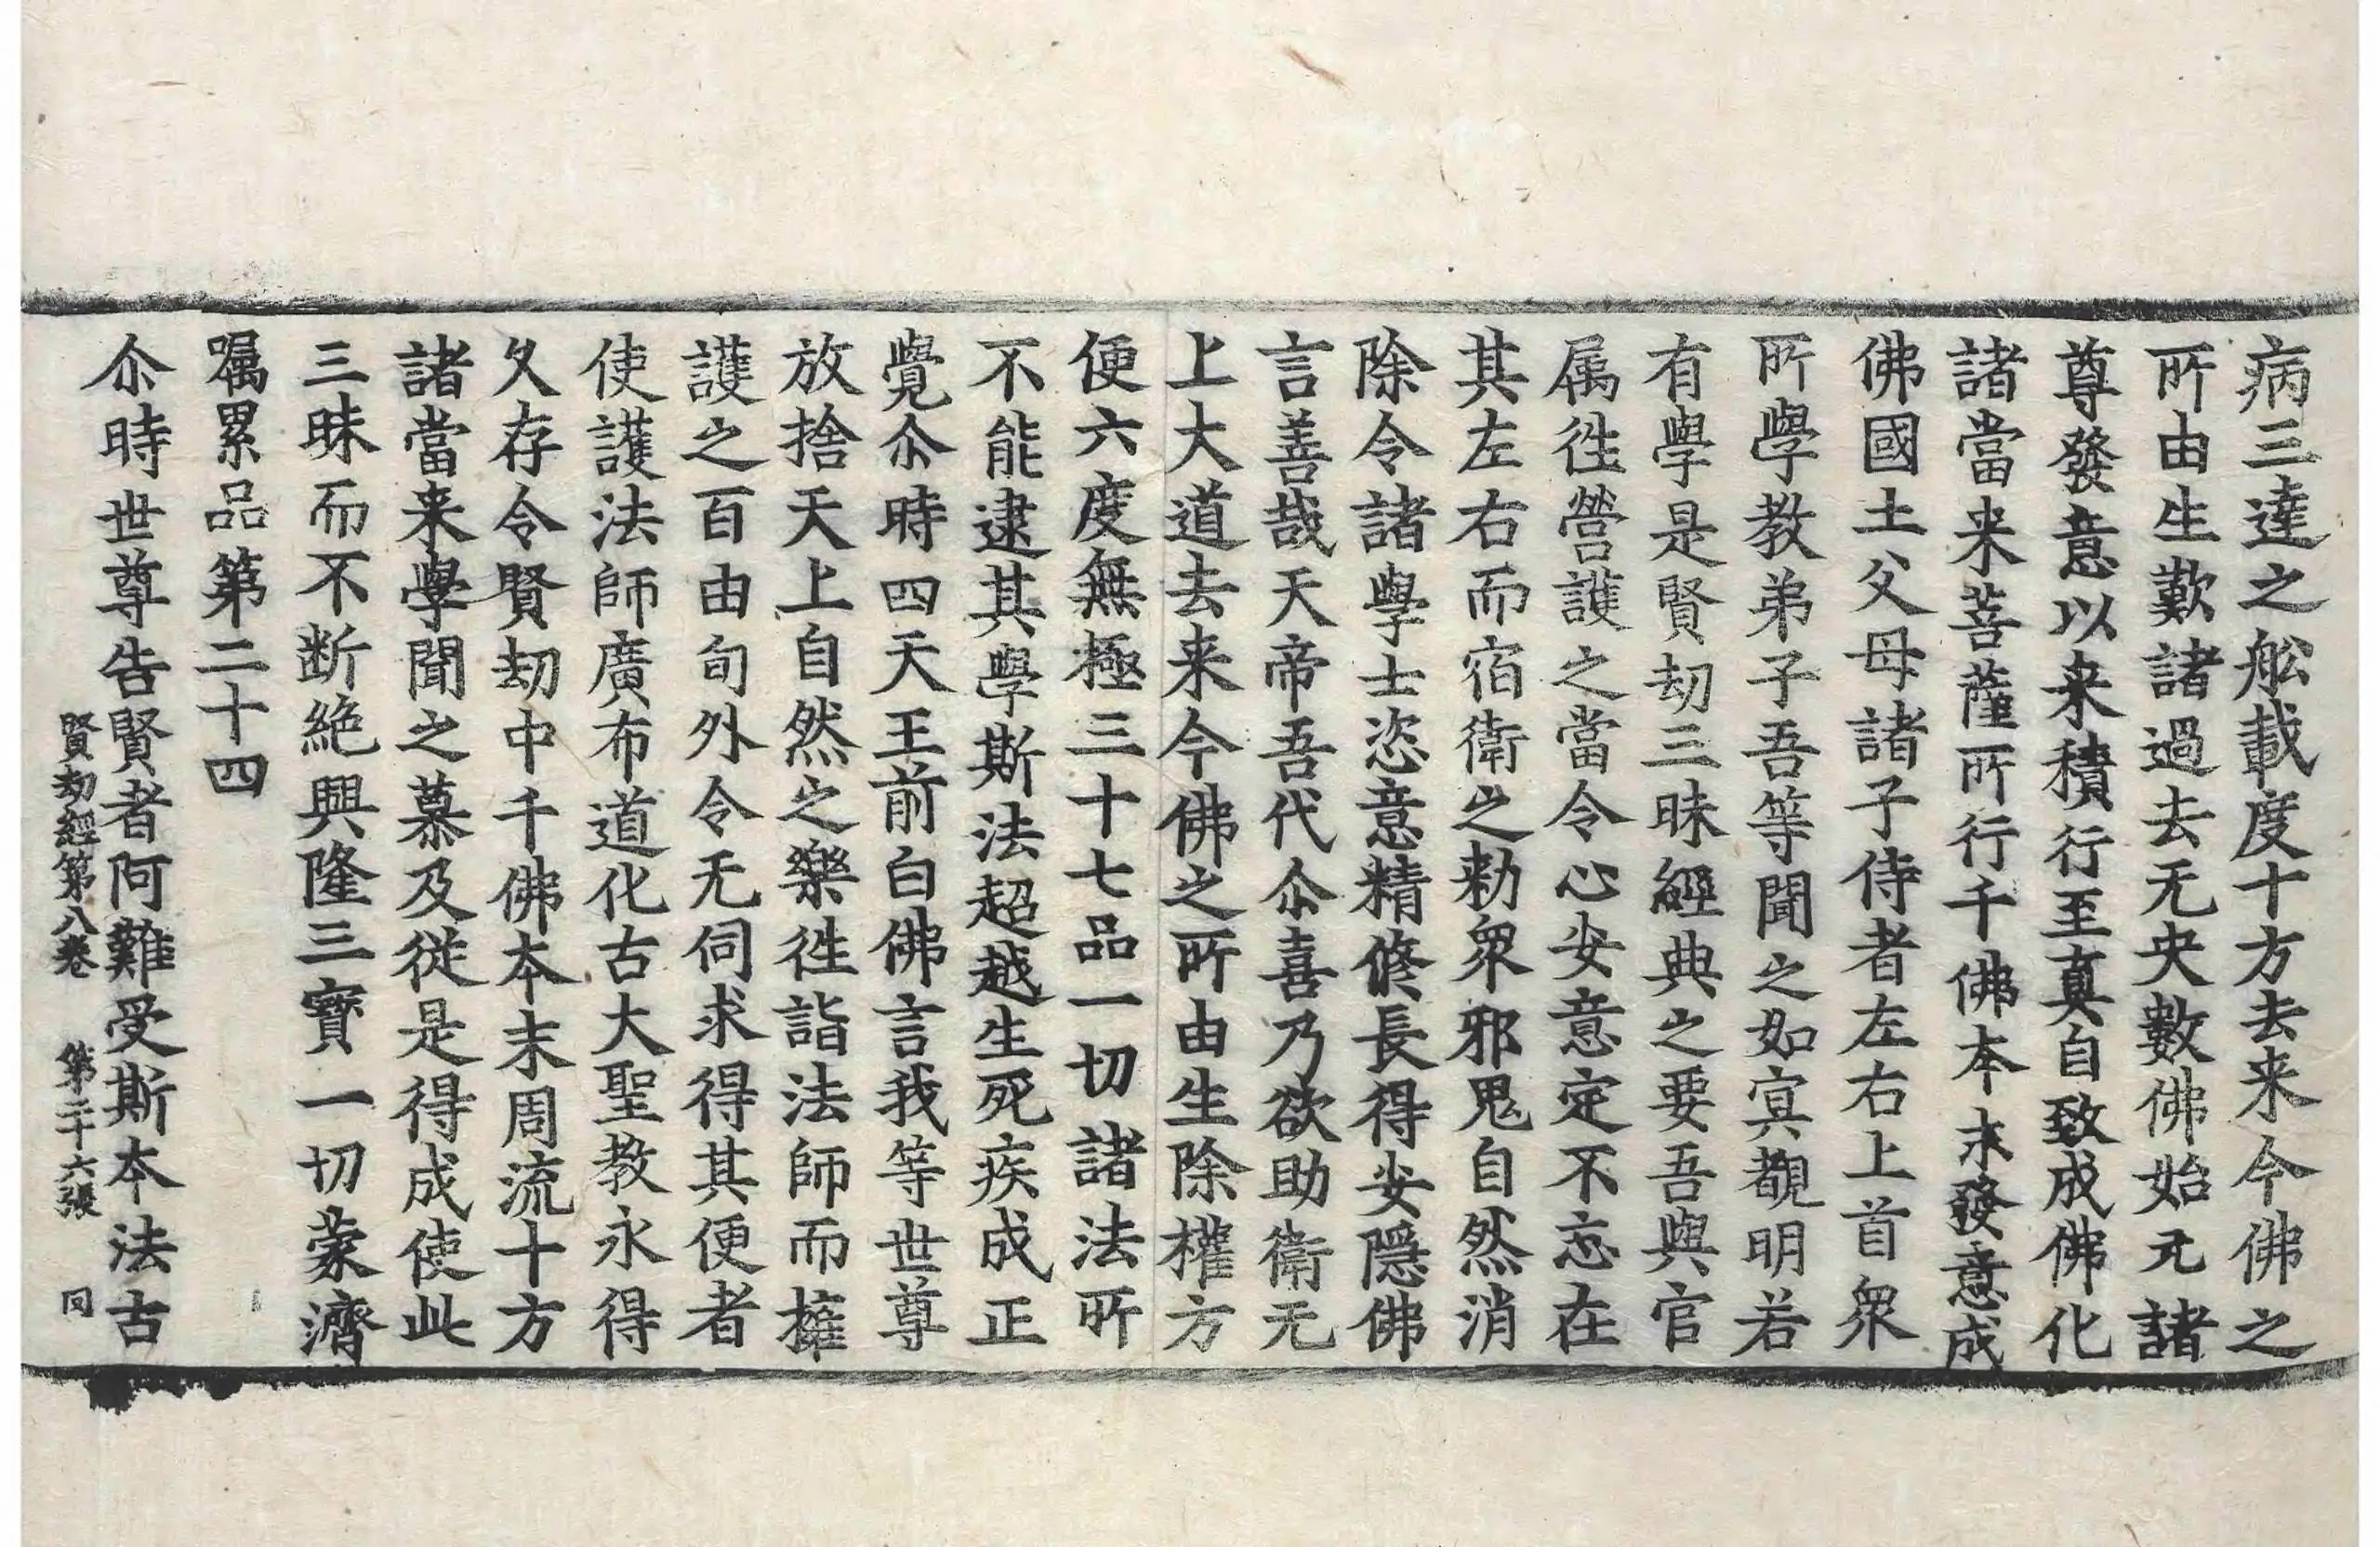 病三達之舩載度十方去来今佛之
所由生歎諸過去无央數佛始元諸
尊發意以来積行至真自致成佛化
諸當来菩薩所行千佛本末發意成
佛國土父母諸子侍者左右上首衆
所學教弟子吾等聞之如㝠覩明若
有學是賢劫三昧經典之要吾與官
属徃營護之當令心安意定不忘在
其左右而宿衛之勑衆邪鬼自然消
除令諸學士恣意精修長得安隱佛
言善哉天帝吾代尒喜乃欲助衛无
上大道去来今佛之所由生除權方
便六度無極三十七品一切諸法所
不能逮其學斯法超越生死疾成正
覺尒時四天王前白佛言我等世尊
放捨天上自然之樂徃詣法師而擁
護之百由旬外令无伺求得其便者
使護法師廣布道化古大聖教永得
久存令賢劫中千佛本末周流十方
諸當来學聞之慕及從是得成使此
三昧而不断絶興隆三寶一切蒙濟
嘱累品第二十四
尒時世尊告賢者阿難受斯本法古
賢劫經第八卷　第二十六張　同